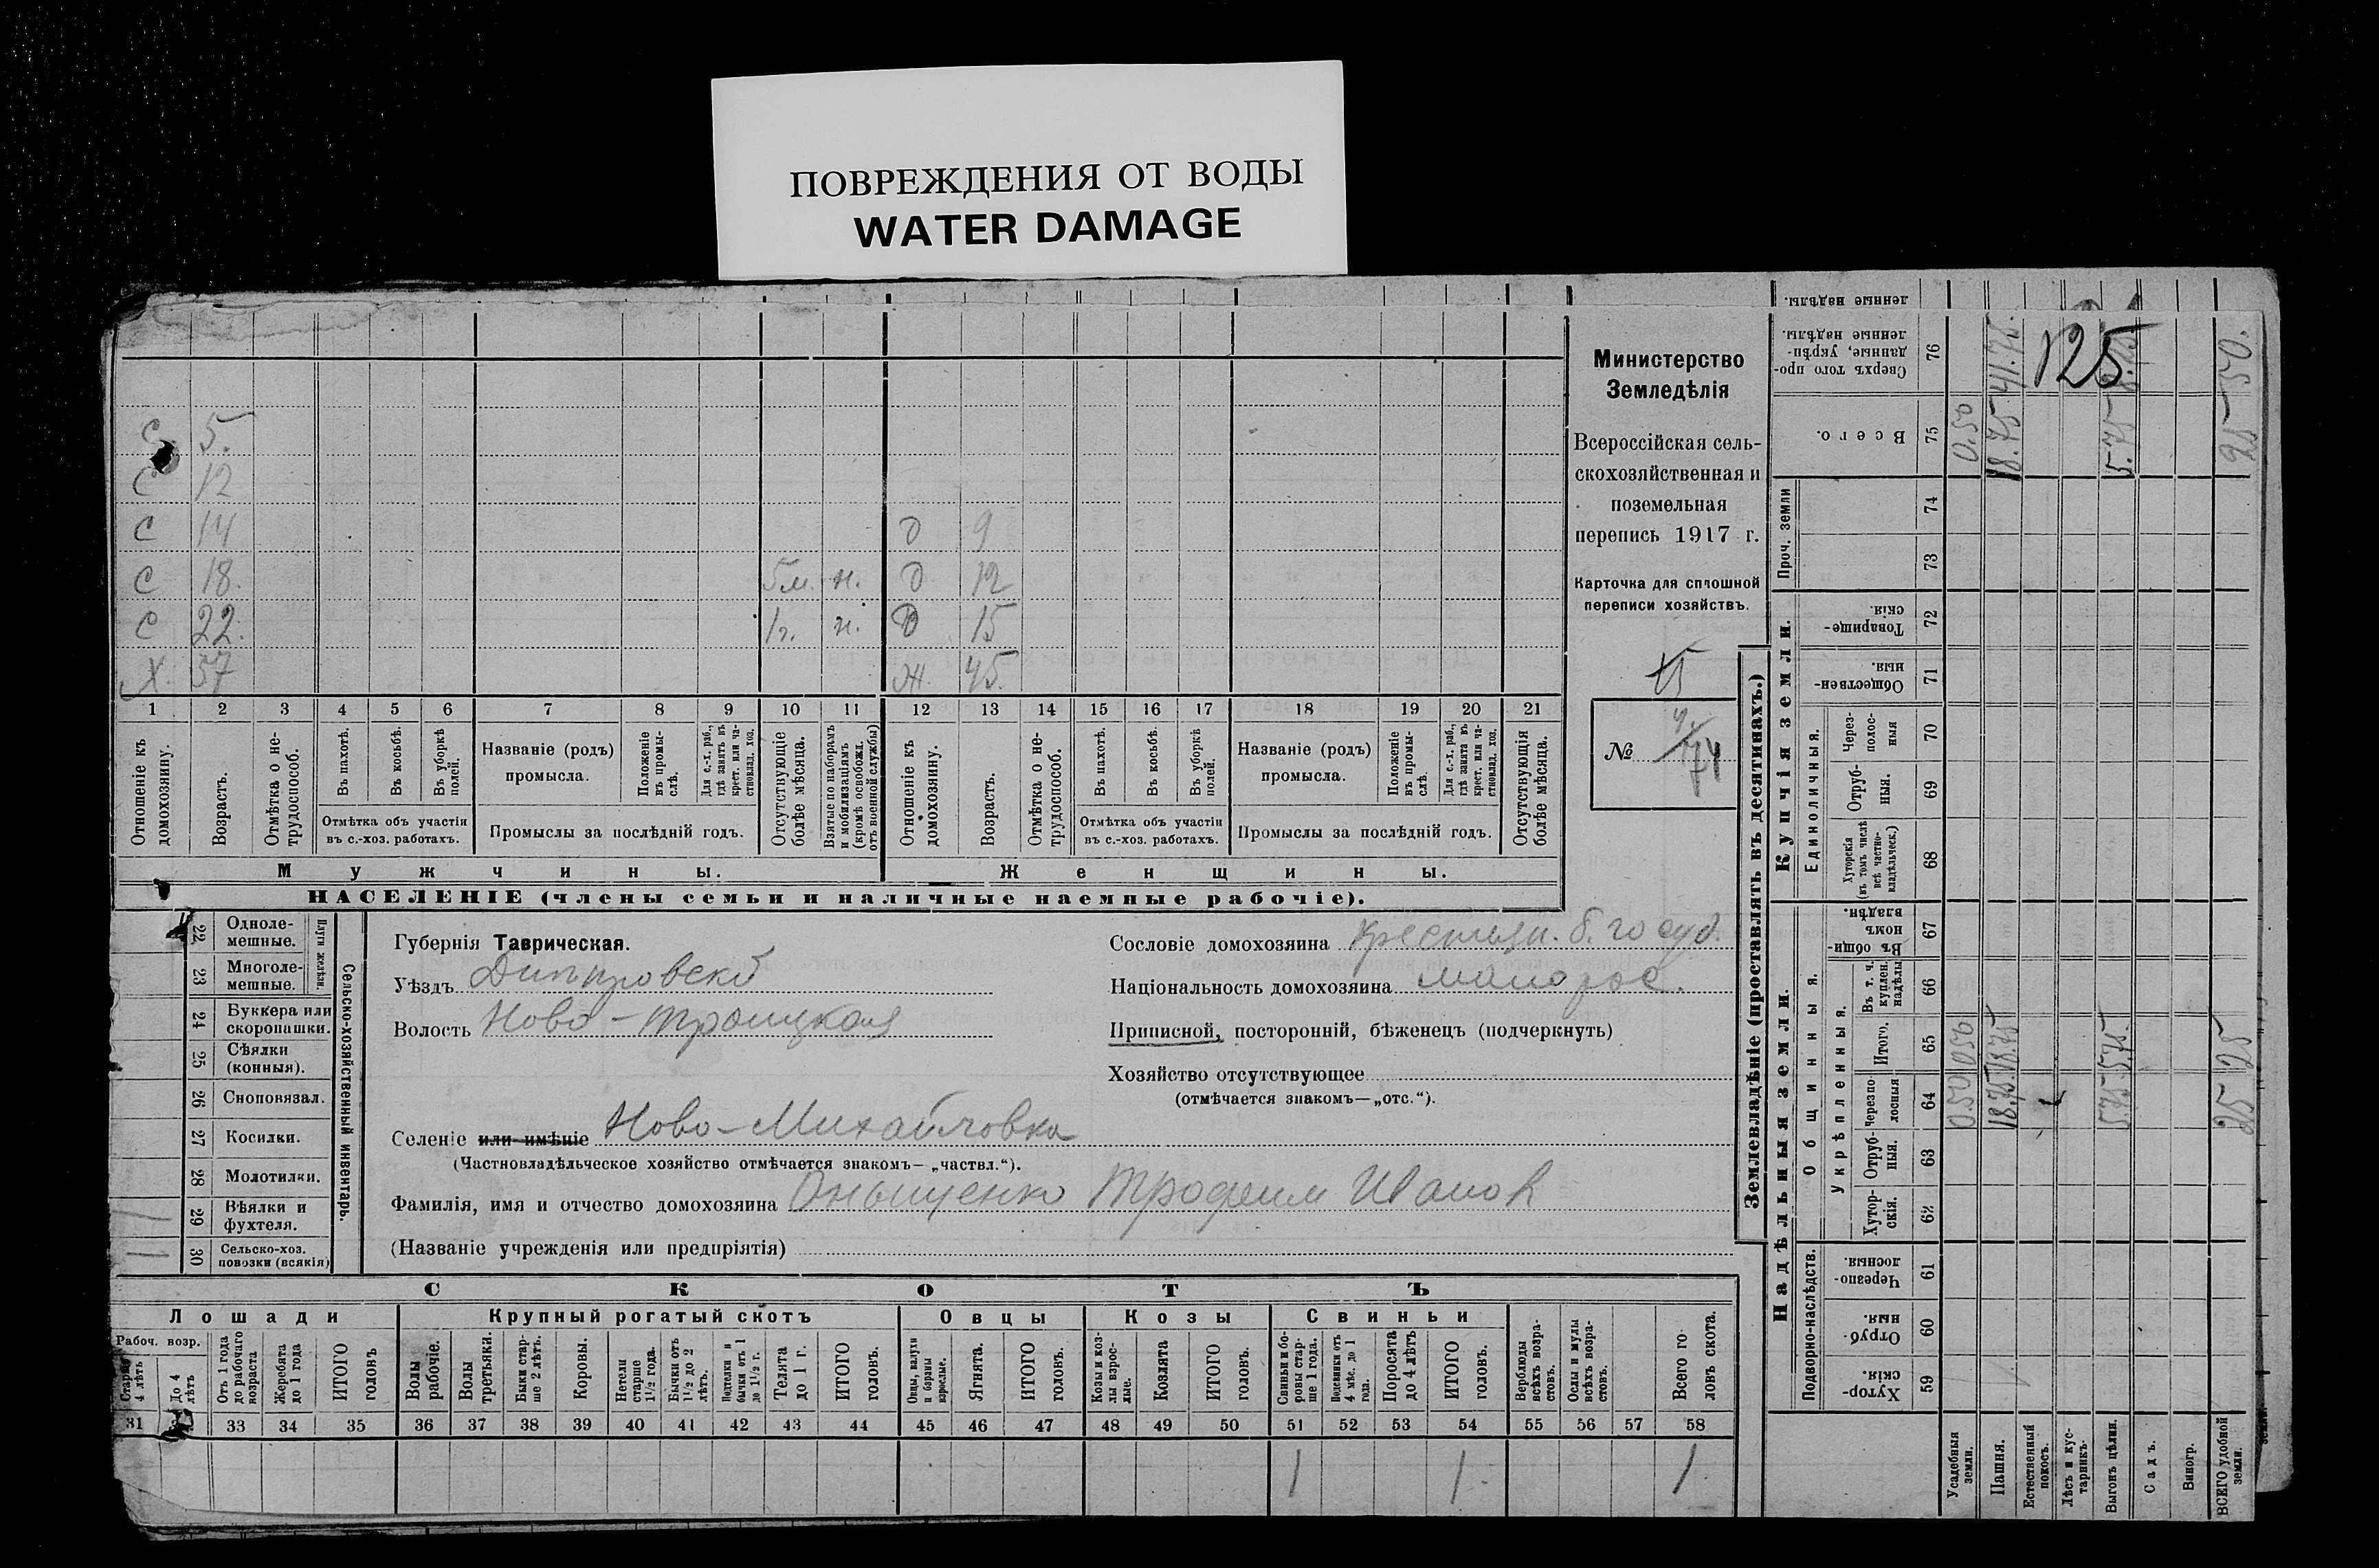 ПОВРЕЖДЕНИЯ ОТ ВОДЫ
WATER DAMAGE
с 5.
с 12
с 14 д 9
с 18. 5м. н. д 12
с 22. 1г. н. д 15
х. 57 ж. 45.
1 2 3 4 5 6 7 8 9 10 11 12 13 14 15 16 17 18 19 20 21
Отношеніе къ домохозяину.
Возрастъ.
Отмѣтка о не-
трудоспособ.
Въ пахотѣ.
Въ косьбѣ.
Въ уборкѣ полей.
Отмѣтка объ участіи
въ с.-хоз. работахъ.
Названіе (родъ)
промысла.
Положеніе
въ промы-
слѣ.
Для с.-х. раб.,
гдѣ занятъ въ
крест. или ча-
стновлад. хоз.
Промыслы за послѣдній годъ.
Отсутствующіе
болѣе мѣсяца.
Взятые по наборамъ
и мобилизаціямъ
(кромѣ освобожд.
отъ военной службы)
Отношеніе къ
домохозяину.
Возрастъ.
Отмѣтка о не-
трудоспособ.
Въ пахотѣ.
Въ косьбѣ.
Въ уборкѣ
полей.
Отмѣтка объ участіи
въ с.-хоз. работахъ.
Названіе (родъ)
промысла.
Положеніе
въ промы-
слѣ.
Для с.-х. раб.,
гдѣ занята въ
крест. или ча-
стновлад. хоз.
Промыслы за послѣдній годъ.
Отсутствующія
болѣе мѣсяца.
Мужчины. Женщины.
НАСЕЛЕНІЕ (члены семьи и наличные наемные рабочіе).
Министерство
Земледѣлія
Всероссійская сель-
скохозяйственная и
поземельная
перепись 1917 г.
Карточка для сплошной
переписи хозяйствъ.
15
№ 74
22 Одноле-
мешные.
23 Многоле-
мешные.
Плуги желѣзн.
24 Буккера или
скоропашки.
25 Сѣялки
(конныя).
26 Сноповязал.
27 Косилки.
28 Молотилки.
29 Вѣялки и
фухтеля.
30 Сельско-хоз.
повозки (всякія)
Сельско-хозяйственный инвентарь.
Губернія Таврическая.
Уѣздъ Днѣпровскій
Волость Ново-Троицкая
Сословіе домохозяина крестьян. б. госуд.
Національность домохозяина малорос.
Приписной, посторонній, бѣженецъ (подчеркнуть)
Хозяйство отсутствующее
(отмѣчается знакомъ—„отс.“).
Селеніе или имѣніе Ново-Михайловка
(Частновладѣльческое хозяйство отмѣчается знакомъ—„частвл.“).
Фамилія, имя и отчество домохозяина Оныщенко Трофим Иванов
(Названіе учрежденія или предпріятія)
СКОТЪ
Лошади Крупный рогатый скотъ Овцы Козы Свиньи
Рабоч. возр.
Старше
4 лѣтъ
До 4
лѣтъ
Отъ 1 года
до рабочаго
возраста
Жеребята
до 1 года
ИТОГО
головъ
Волы
рабочіе.
Волы
третьяки.
Быки стар-
ше 2 лѣтъ.
Коровы.
Нетели
старше
1½ года.
Бычки отъ
1½ до 2
лѣтъ.
Нетелки и
бычки отъ 1
до 1½ г.
Телята
до 1 г.
ИТОГО
головъ.
Овцы, валухи
и бараны
взрослые.
Ягнята.
ИТОГО
головъ.
Козы и коз-
лы взрос-
лые.
Козлята
ИТОГО
головъ.
Свиньи и бо-
ровы стар-
ше 1 года.
Подсвинки отъ
4 мѣс. до 1
года.
Поросята
до 4 лѣтъ
ИТОГО
головъ.
Верблюды
всѣхъ возра-
стовъ.
Ослы и мулы
всѣхъ возра-
стовъ.
Всего го-
ловъ скота.
31 33 34 35 36 37 38 39 40 41 42 43 44 45 46 47 48 49 50 51 52 53 54 55 56 57 58
1 1 1
Землевладѣніе (проставлять въ десятинахъ.)
ленные надѣлы.
Сверхъ того про-
данные, укрѣп-
ленные надѣлы.
76
Всего.
75
Проч. земли
74
73
Купчія земли.
Товарище-
скія.
72
Обществен-
ныя.
71
Единоличныя.
Через-
полос-
ныя
70
Отруб-
ныя.
69
Хуторскія
(въ томъ числѣ
всѣ частно-
владѣльческ.)
68
Надѣльныя земли.
Общинныя.
Въ общи-
номъ
владѣн.
67
Укрѣпленныя.
Въ т. ч.
куплен.
надѣлы
66
Итого.
65
Черезпо-
лосныя
64
Отруб-
ныя.
63
Хутор-
скія.
62
Подворно-наслѣдств.
Черезпо-
лосныя.
61
Отруб-
ныя.
60
Хутор-
скія.
59
Усадебныя
земли.
Пашня.
Естественный
покосъ.
Лѣсъ и кус-
тарникъ.
Выгонъ цѣлин.
Садъ.
Виногр.
ВСЕГО удобной
земли.
125
41.75.
50.
0.50 18.75 5.75 25
0.50 18.75 5.75 25
0.50 18.75 5.75 25